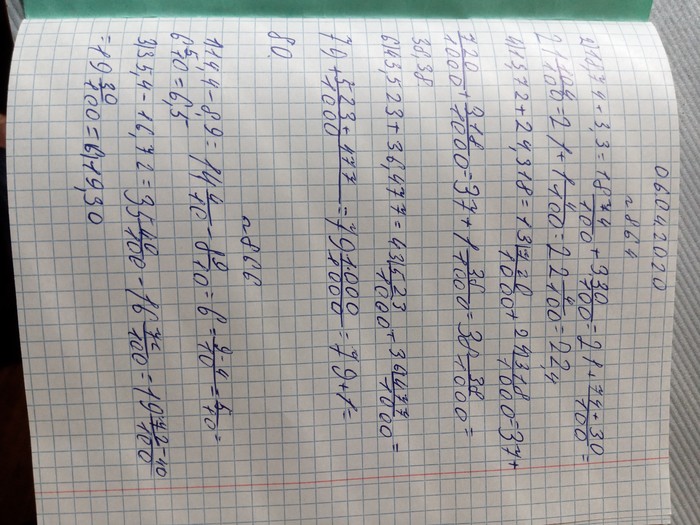 06042020
n864
1) 18,74 + 3,3 = 18 74/100 + 3 30/100 = 21 + 74+30/100 =
21 104/100 = 21 + 1 4/100 = 22 4/100 = 22,4
4) 13,72 + 24,318 = 13 720/1000 + 24 318/1000 = 37 +
720/1000 + 318/1000 = 37 + 1 38/1000 = 38 38/1000 =
38,38
6) 43,523 + 36,477 = 43 523/1000 + 36 477/1000 =
79 + 523+477/1000 = 79 1000/1000 = 79 + 1 =
80.
n866
1) 14,4 - 8,9 = 14 4/10 - 8 9/10 = 6 = 9-4/10 = 5/10 =
6 5/10 = 6,5
3) 35,4 - 16,72 = 35 40/100 - 16 72/100 = 19 72-40/100
= 19 30/100 = 19,30